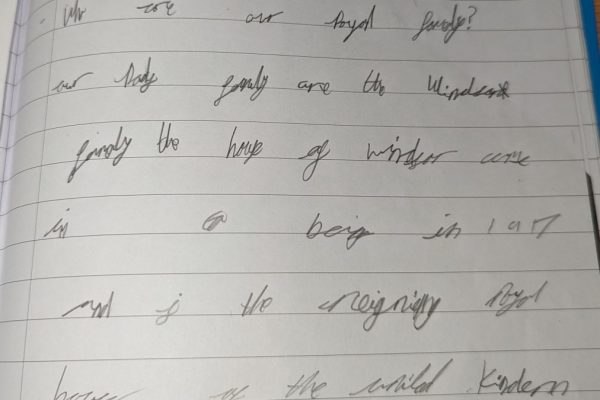 who are our Royal family?
our Rody family are the Windsor
family the house of windsor came
in a being in 1917
and is the reigning Royal
house of the united Kindem